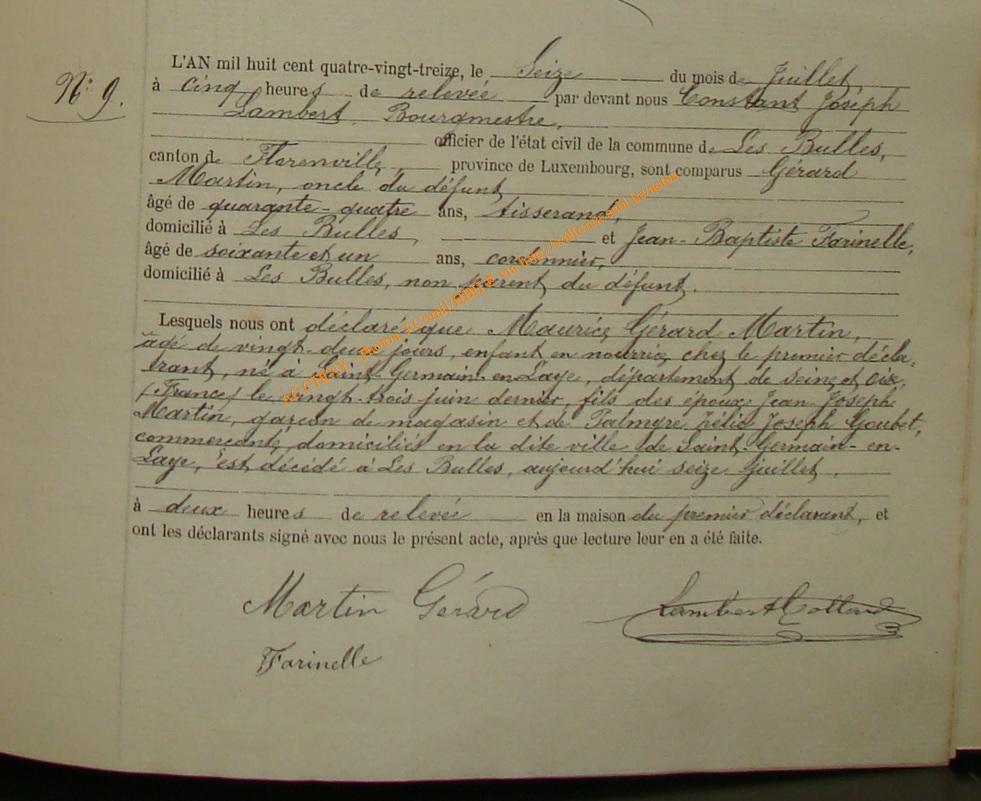 N° 9.
L'AN mil huit cent quatre-vingt-treize, le Seize du mois de Juillet,
à cinq heures de relevée par devant nous Constant Joseph
Lambert, Bourgmestre,
officier de l'état civil de la commune de Les Bulles,
canton de Florenville, province de Luxembourg, sont comparus Gérard
Martin, oncle du défunt
âgé de quarante-quatre ans, tisserand,
domicilié à Les Bulles, et Jean-Baptiste Farinelle,
âgé de soixante et un ans, cordonnier,
domicilié à Les Bulles, non parent du défunt.
Lesquels nous ont déclaré que Maurice, Gérard Martin,
âgé de vingt-deux jours, enfant en nourrice chez le premier décla-
rant, né à Saint-Germain-en-Laye, département de Seine et Oise,
(France) le vingt-trois juin dernier, fils des époux Jean Joseph
Martin, garçon de magasin et de Palmyre Joseph Goubet,
commerçante, domiciliés en la dite ville de Saint-Germain-en-
Laye, est décédé à Les Bulles, aujourd'hui seize Juillet,
à deux heures de relevée en la maison du premier déclarant, et
ont les déclarants signé avec nous le présent acte, après que lecture leur en a été faite.
Martin Gérard
Lambert
Farinelle